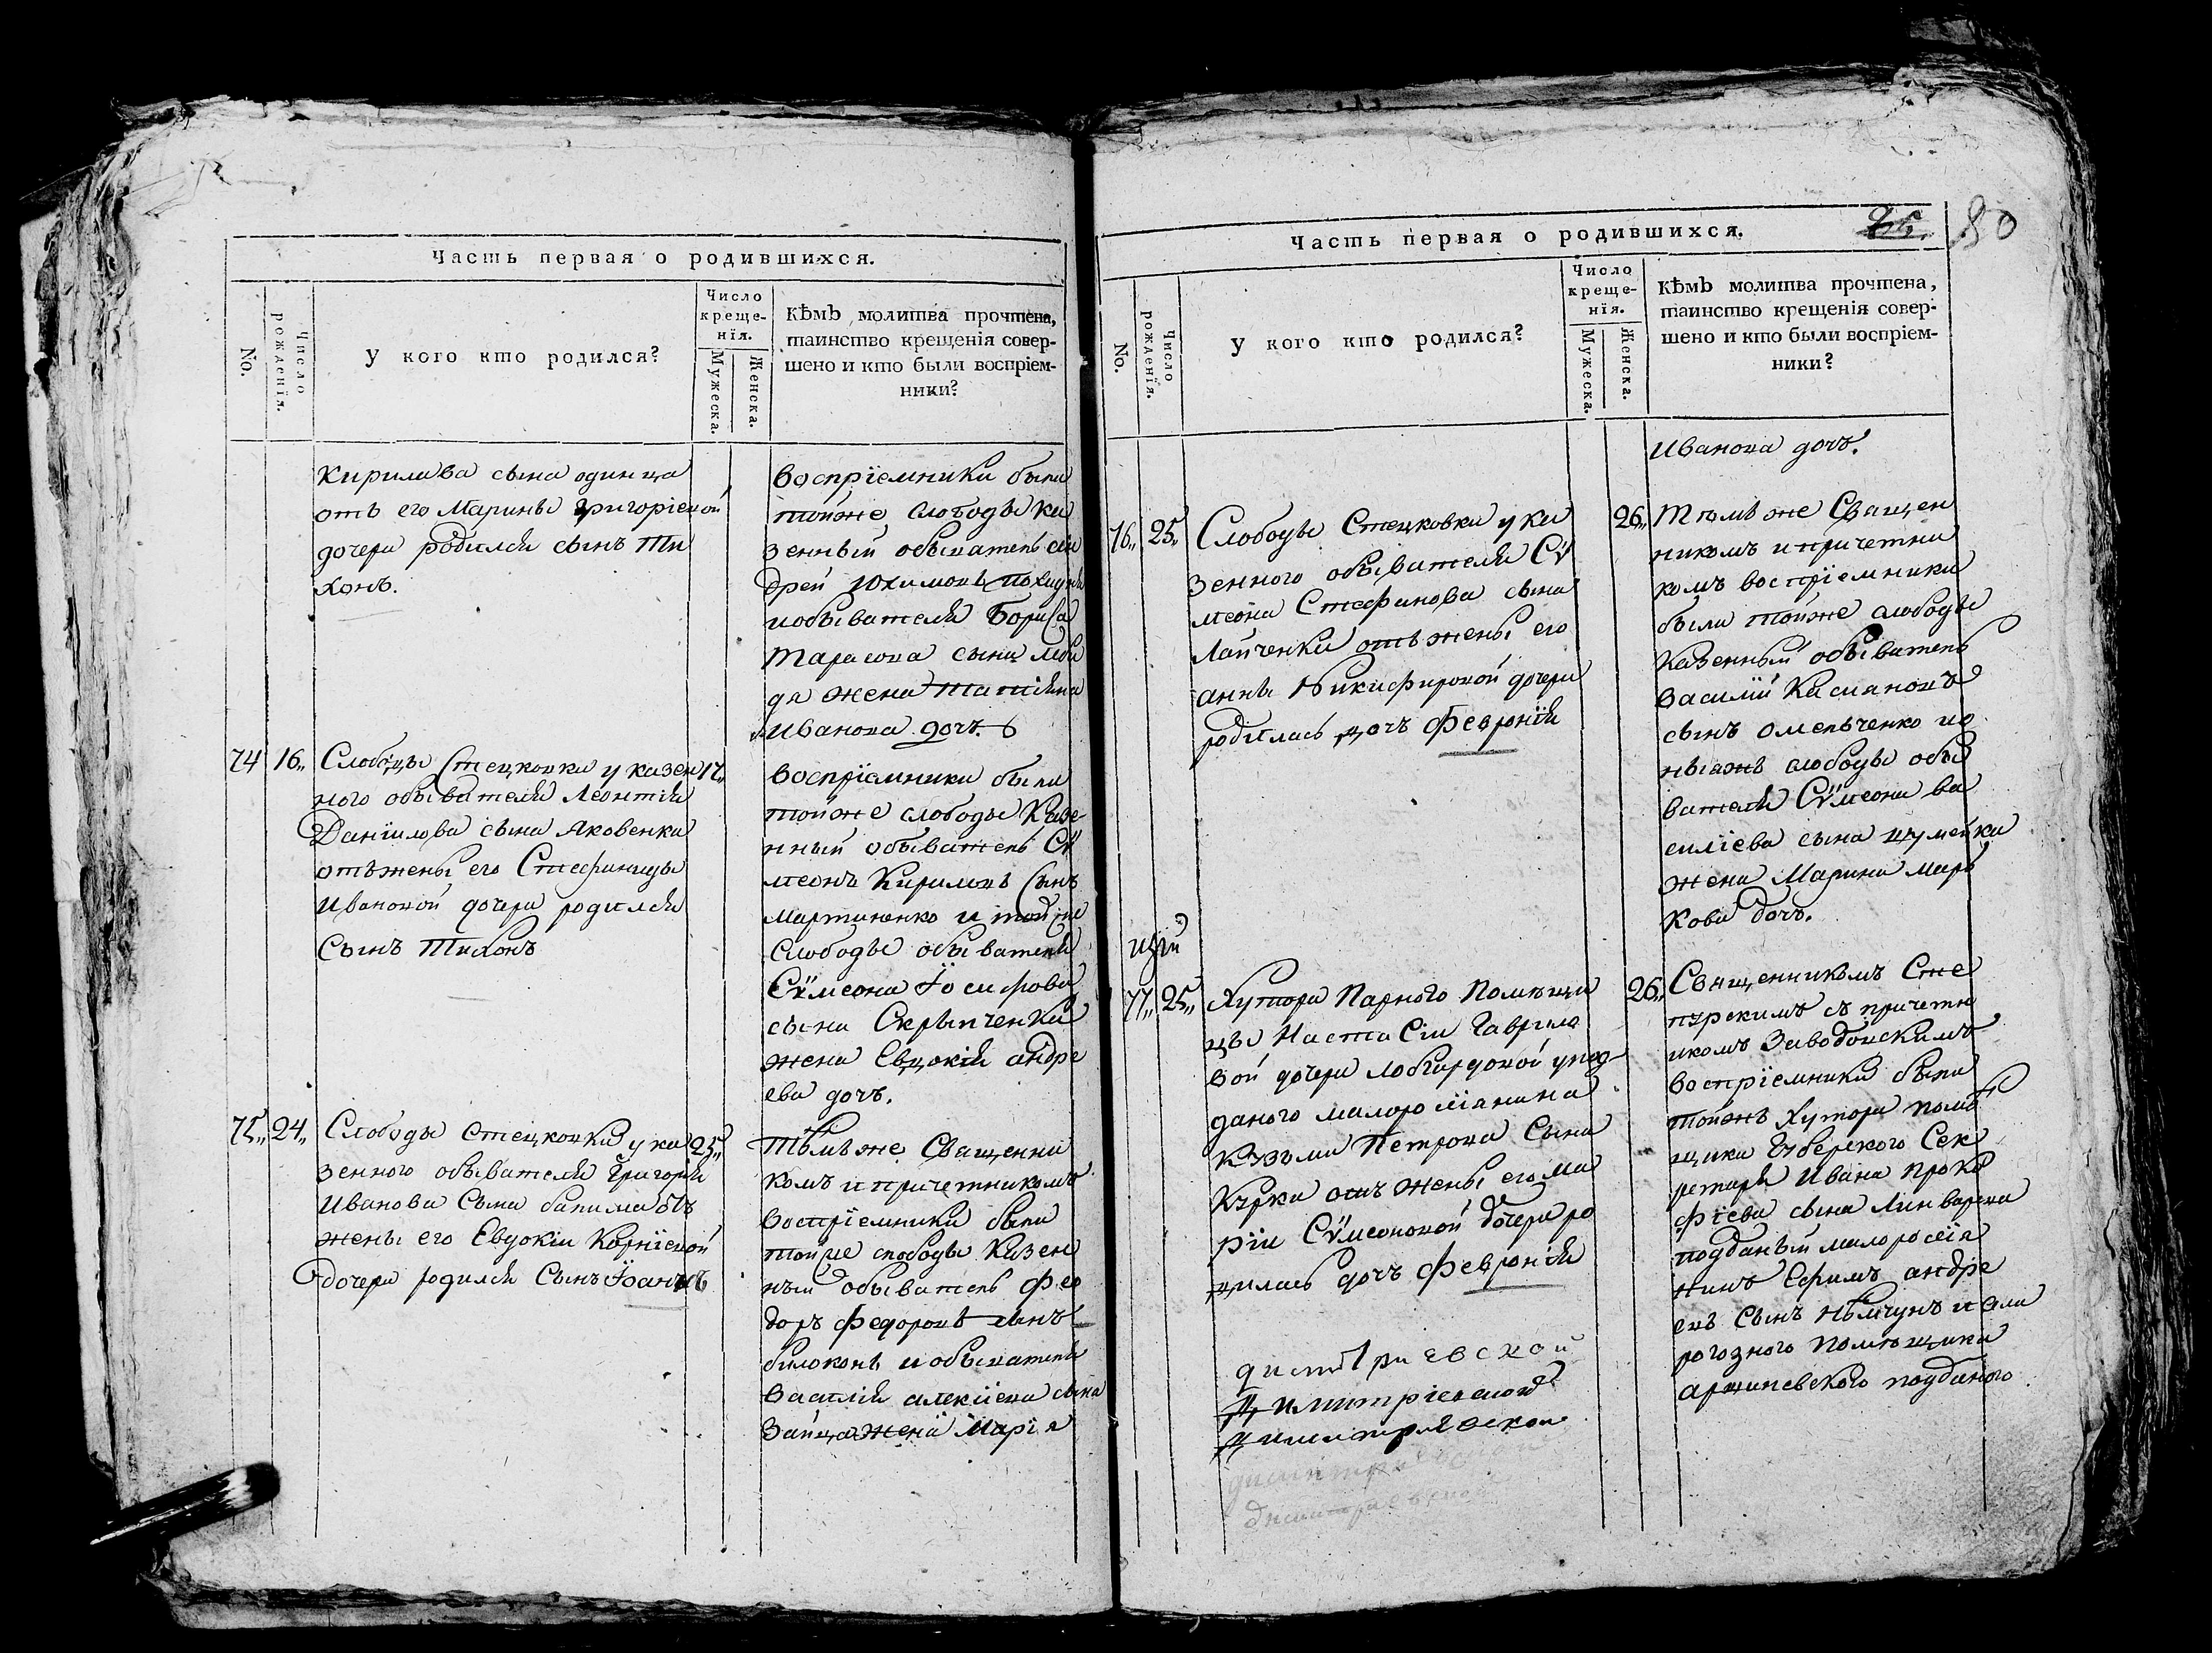 Часть первая о родившихся.
No.
Число рожденія.
У кого кто родился?
Число
креще-
нія.
Мужеска.
Женска.
Кѣмъ молитва прочтена,
таинство крещенія совер-
шено и кто были воспріем-
ники?
Кирилава сына одинца
отъ его Марины Григоріевой
дочери родился сынъ Ти
хонъ.
воспріемники были
тойже слободы ка
зенный обыватель
дрей Юхимовъ
иобывателя Бориса
Тарасова сына
да жена Татіяна
Иванова дочь.
74 16,, Слободы Стецковки у казен 17,,
ного обывателя Леонтія
Даніилова сына Яковенка
отъжены его Стефаниды
Ивановой дочери родился
Сынъ Тихонъ
воспріемники были
тойже слободы Казе
нный обыватель Сѵ
меонъ Кириловъ Сынъ
мартиненко и тойже
Слободы обывателя
Сѵмеона Іосифова
сына Скрыпченка
жена Евдокія андре
ева дочь.
75,, 24,, Слободы Стецковки у ка 25,,
зенного обывателя Григорія
Иванова Сына отъ
жены его Евдокіи Корніевой
дочери родился Сынъ Іоаннъ
Тѣмъже Священни
комъ и причетникомъ
воспріемники были
тойже слободы Казен
ный обыватель Фео
доръ Федоровъ сынъ
билоконь и обывателя
Василія алексіева сына
Зайца жена Марія
Часть первая о родившихся.
80
No.
Число рожденія.
У кого кто родился?
Число
креще-
нія.
Мужеска.
Женска.
Кѣмъ молитва прочтена,
таинство крещенія совер-
шено и кто были воспріем-
ники?
Иванова дочь.
76,, 25,, Слободы Стецковки у ка 26,,
зенного обывателя Сѵ
меона Стефанова сына
Лапченка отъ жены его
анны Никифировой дочери
родилась дочь Февронія
Тѣмъ же Священ
никомъ и причетни
комъ воспріемники
были тойже слободы
Казенный обыватель
Василій Касияновъ
сынъ омельченко ио
ныяжъ слободы обы
вателя Сѵмеона ва
силіева сына
жена Марина Марь
кова дочь.
77,, 25,, Хутора Парного Помѣщи 26,,
цы Настасіи Гаврило
вой дочери упод
даного малоросіянина
Кузьми Петрова Сына
Курка отъ жены его Ма
ріи Сѵмеоновой дочери ро
дилась дочь Февронія
Священникомъ Сте
пурскимъ съ причетн
икомъ Заводовскимъ
воспріемники были
тойжъ Хутора помѣ
щика Губерского Сек
ретаря Ивана Проко
фіева сына Линварева
подданый малоросія
нинъ Ефимъ андре
евъ Сынъ и
рогозного помѣщика
подданого
дмитриевской
Димитріевской
димитриевской